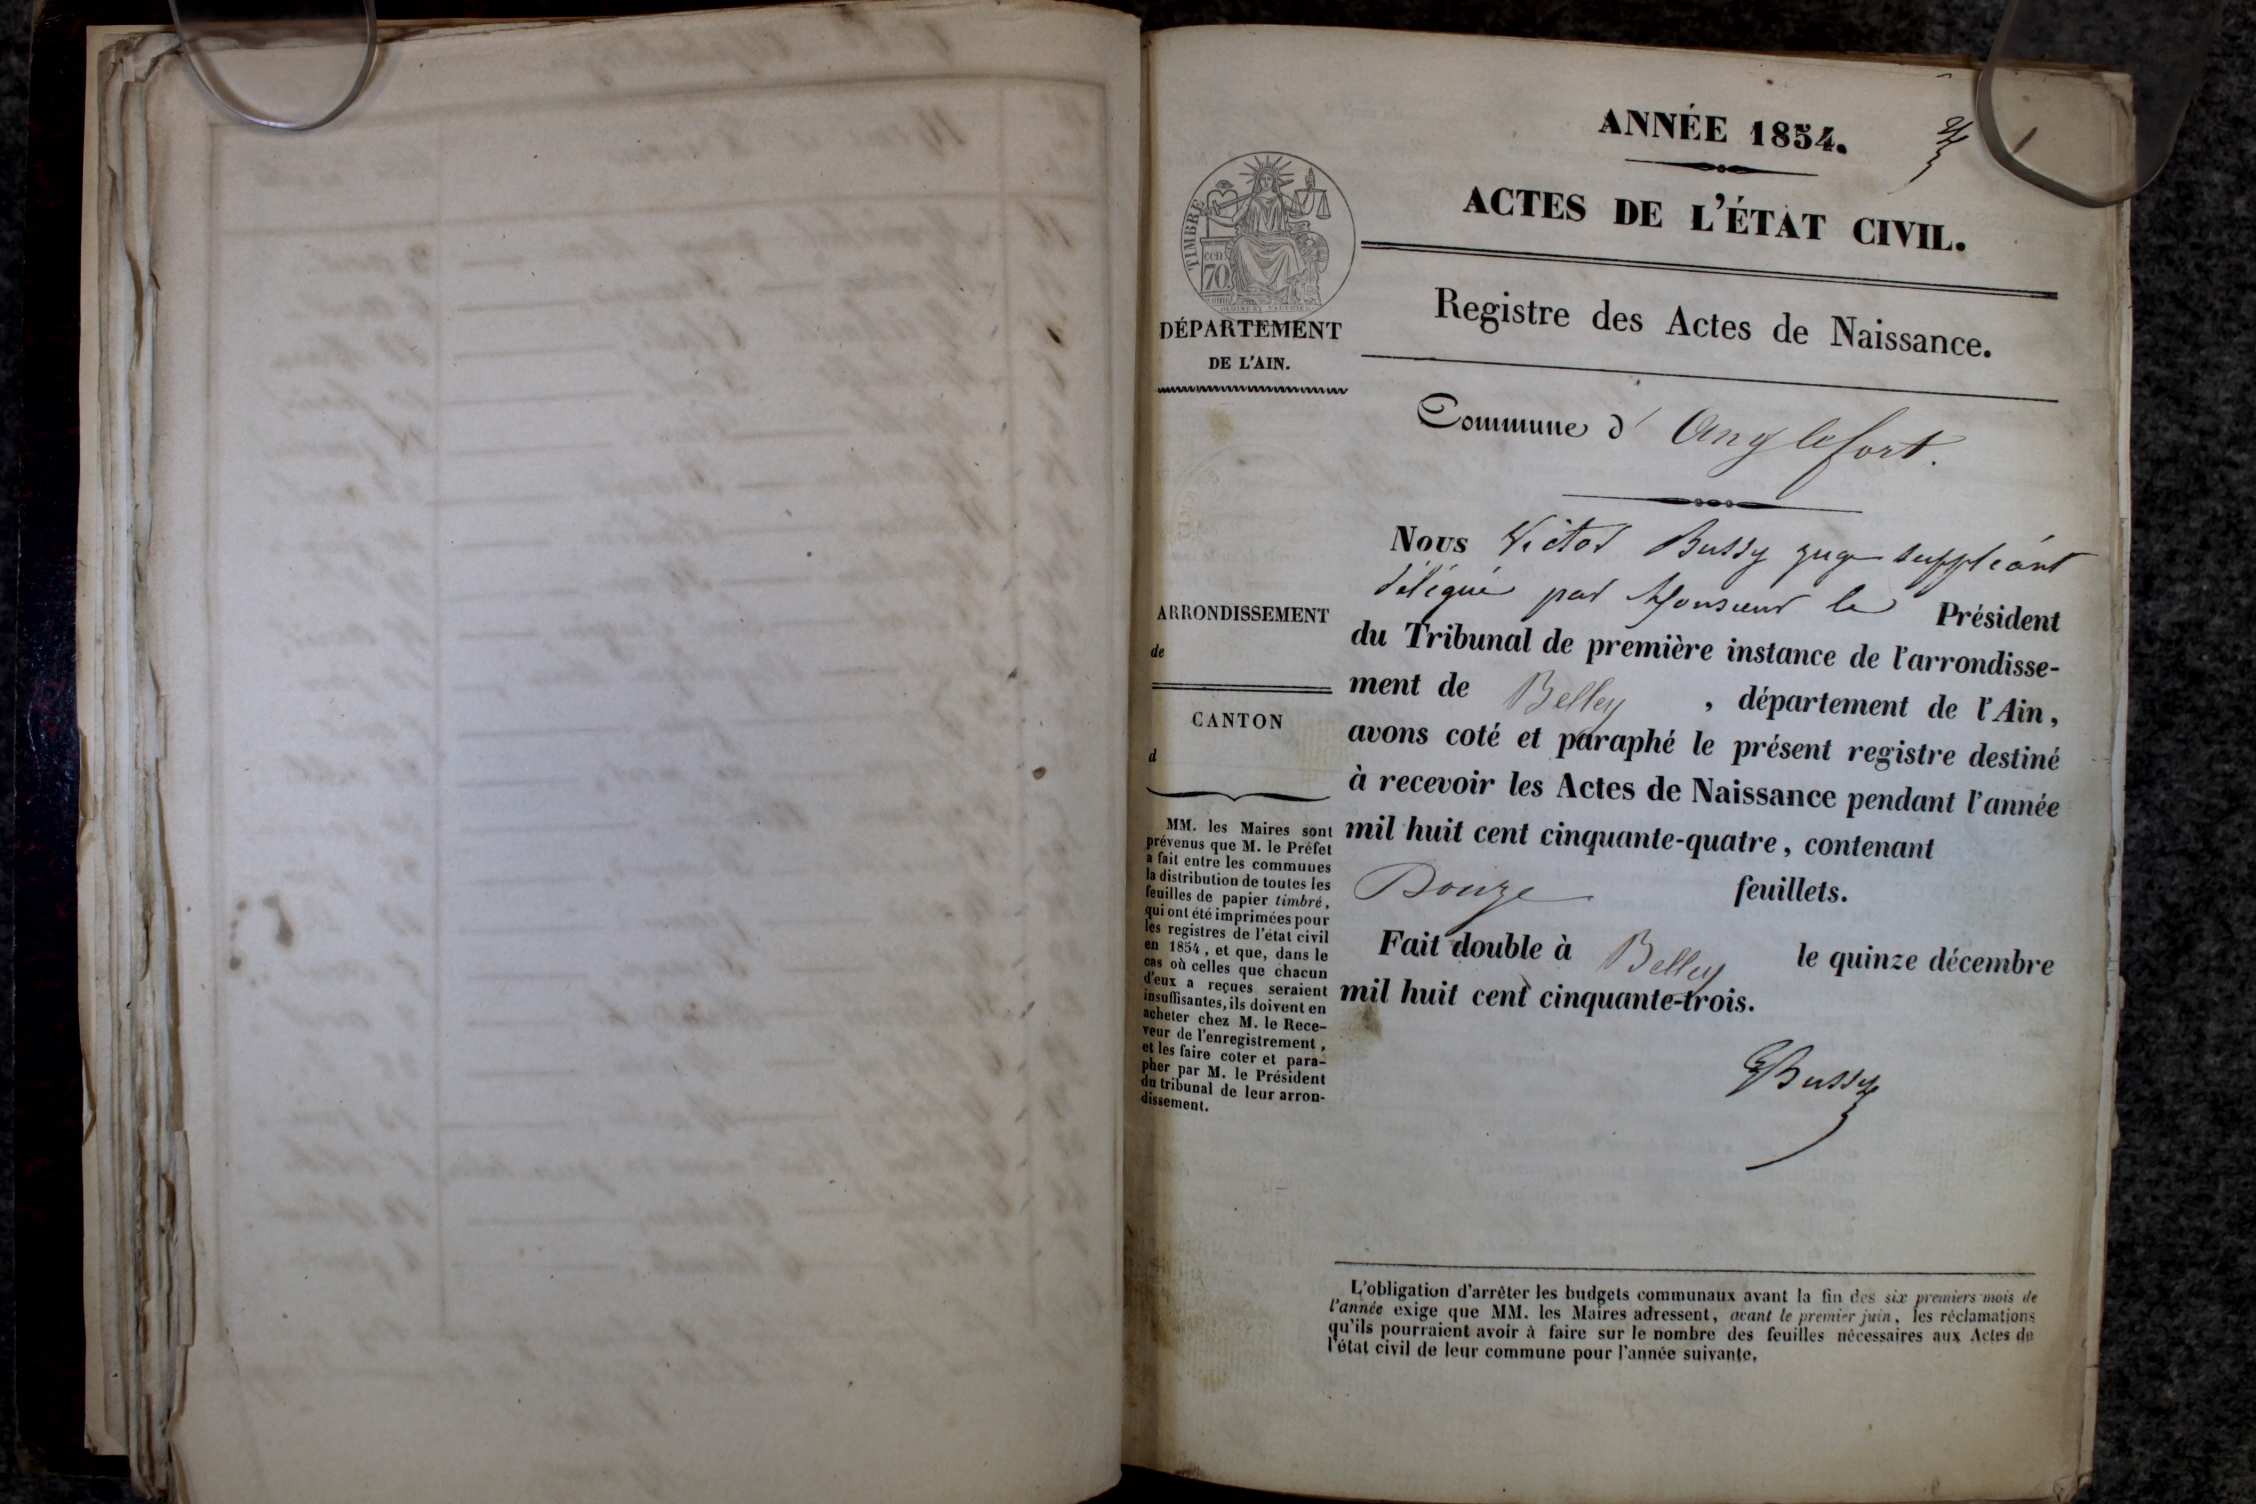 ANNÉE 1854.
1
ACTES DE L'ÉTAT CIVIL.
TIMBRE
cen
70
DÉPARTEMENT
DE L'AIN.
Registre des Actes de Naissance.
Commune d' Anglefort.
Nous Victor Bussy juge suppléant
délégué par Monsieur le Président
du Tribunal de première instance de l'arrondisse-
ment de Belley , département de l'Ain,
avons coté et paraphé le présent registre destiné
à recevoir les Actes de Naissance pendant l'année
mil huit cent cinquante-quatre, contenant
Douze feuillets.
Fait double à Belley le quinze décembre
mil huit cent cinquante-trois.
Bussy
ARRONDISSEMENT
de
CANTON
d
MM. les Maires sont
prévenus que M. le Préfet
a fait entre les communes
la distribution de toutes les
feuilles de papier timbré,
qui ont été imprimées pour
les registres de l'état civil
en 1854, et que, dans le
cas où celles que chacun
d'eux a reçues seraient
insuffisantes, ils doivent en
acheter chez M. le Rece-
veur de l'enregistrement,
et les faire coter et para-
pher par M. le Président
du tribunal de leur arron-
dissement.
L'obligation d'arrêter les budgets communaux avant la fin des six premiers mois de
l'année exige que MM. les Maires adressent, avant le premier juin, les réclamations
qu'ils pourraient avoir à faire sur le nombre des feuilles nécessaires aux Actes de
l'état civil de leur commune pour l'année suivante.